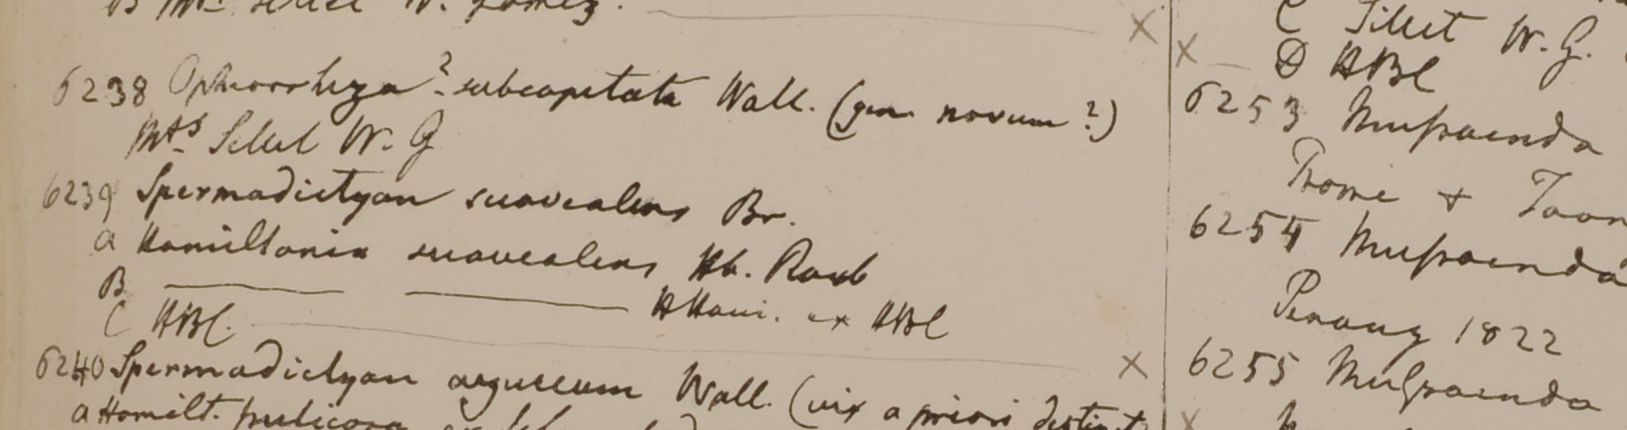 B Mts Sillet W. Gomez.
6238 Ophiorrhiza? subcapitata Wall. (gen novum?)
Mts Sillet W. G
6239 Spermadictyon suaveolens Br.
a Hamiltonia suaveolens Hb. Roxb
B HHam. ex HBC
C HBC.
6240 Spermadictyon Wall. (vix a priori distinct
a Hamilt.
C Sillet W. G.
D HBC
6253 Mussaenda
Prome + Taon
6254 Mussaenda
Penang 1822
6255 Mussaenda